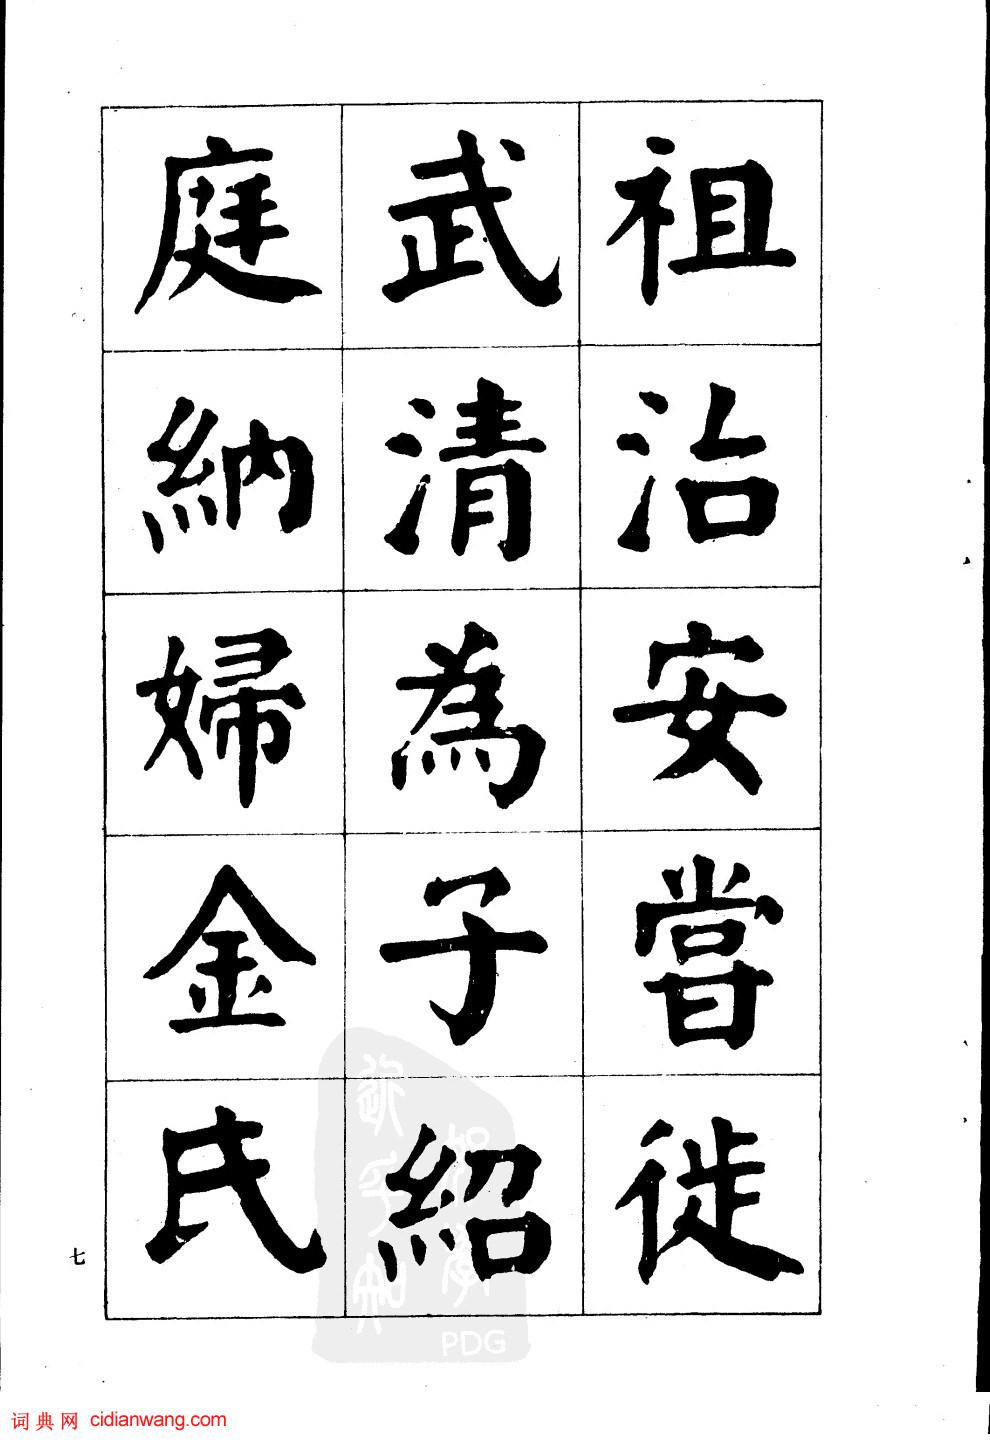 祖治安嘗徙
武清為子紹
庭納婦金氏
七
PDG
词典网 cidianwang.com